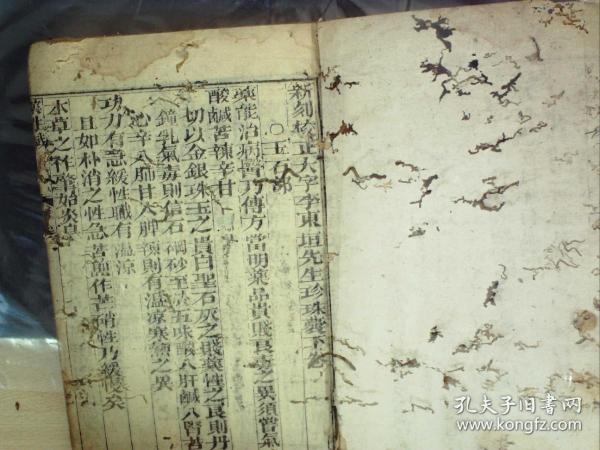 新刻校正大字李東垣先生珍珠囊下卷
○玉石部
藥能治病醫乃傳方當明藥品貴賤良毒之異須嘗氣
酸鹹苦辣辛甘
切以金銀珠玉之貴白聖石灰之賤藥性之良則丹
鐘乳氣毒則信石硇砂至於五味酸入肝鹹入腎苦
心辛入肺甘入脾 則有溫涼寒熱之異
功力有急緩性職有溫涼
且如朴消之性急苦 作芒硝性乃緩 矣
本草之作肇始炎皇
孔夫子旧書网
www.kongfz.com